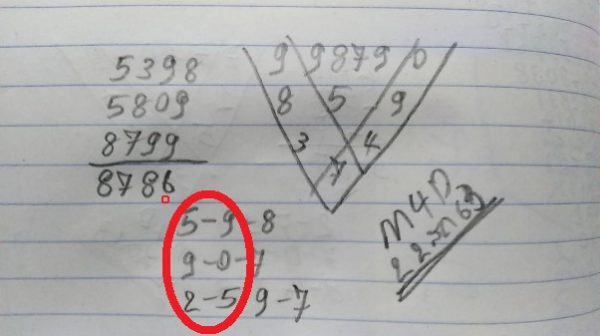 5398
5809
8799
8786
5-9-8
9-0-7
2-5 9-7
9 9879 0
8 5 9
3 4
M4D